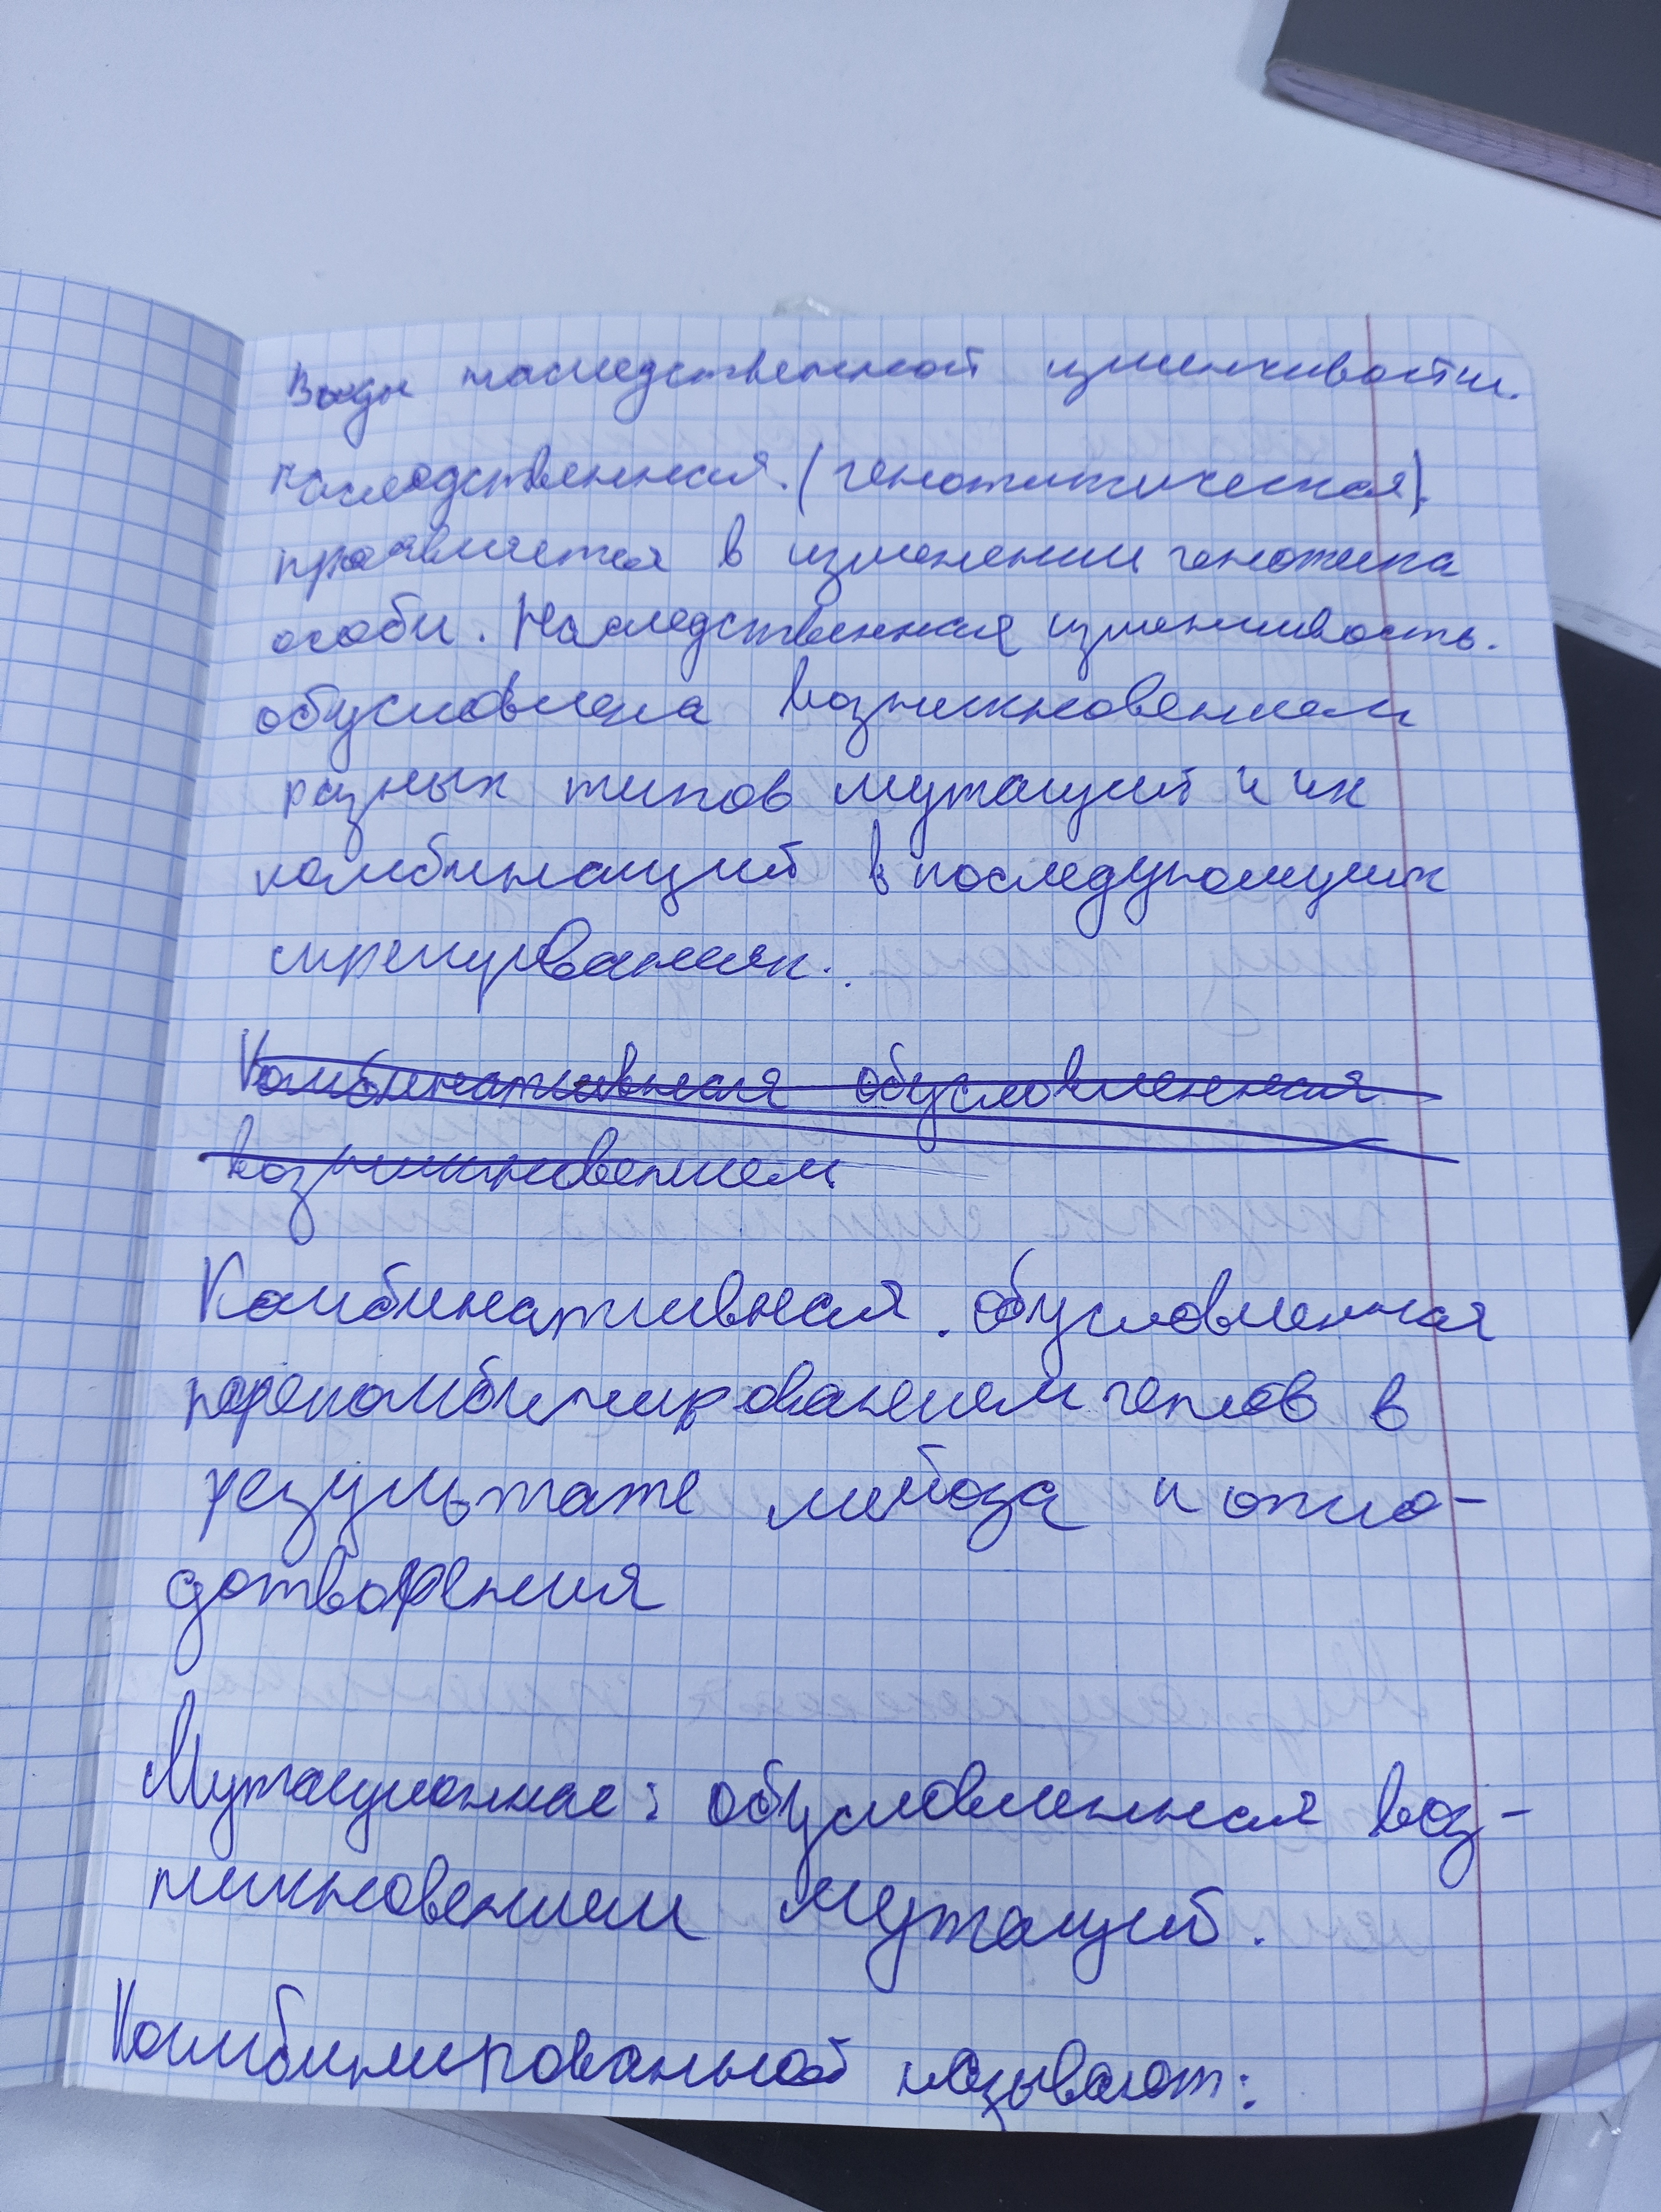 Виды наследственной изменчивости.
Наследственная. (генотипическая).
проявляется в изменении генотипа
особи. Наследственная изменчивость.
обусловлена возникновением
разных типов мутаций и их
комбинаций в последующих
скрещиваниях.
Комбинативная обусловленная
возникновением
Комбинативная. обусловленная
перекомбинированием генов в
результате мейоза и опло-
дотворения
Мутационная: обусловленная воз-
никновением мутаций.
Комбинированной называют: